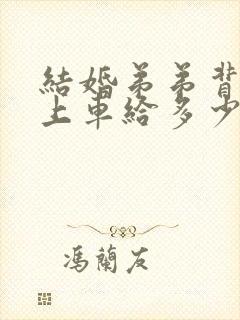 結婚弟弟背
上車給多少
馮蘭友